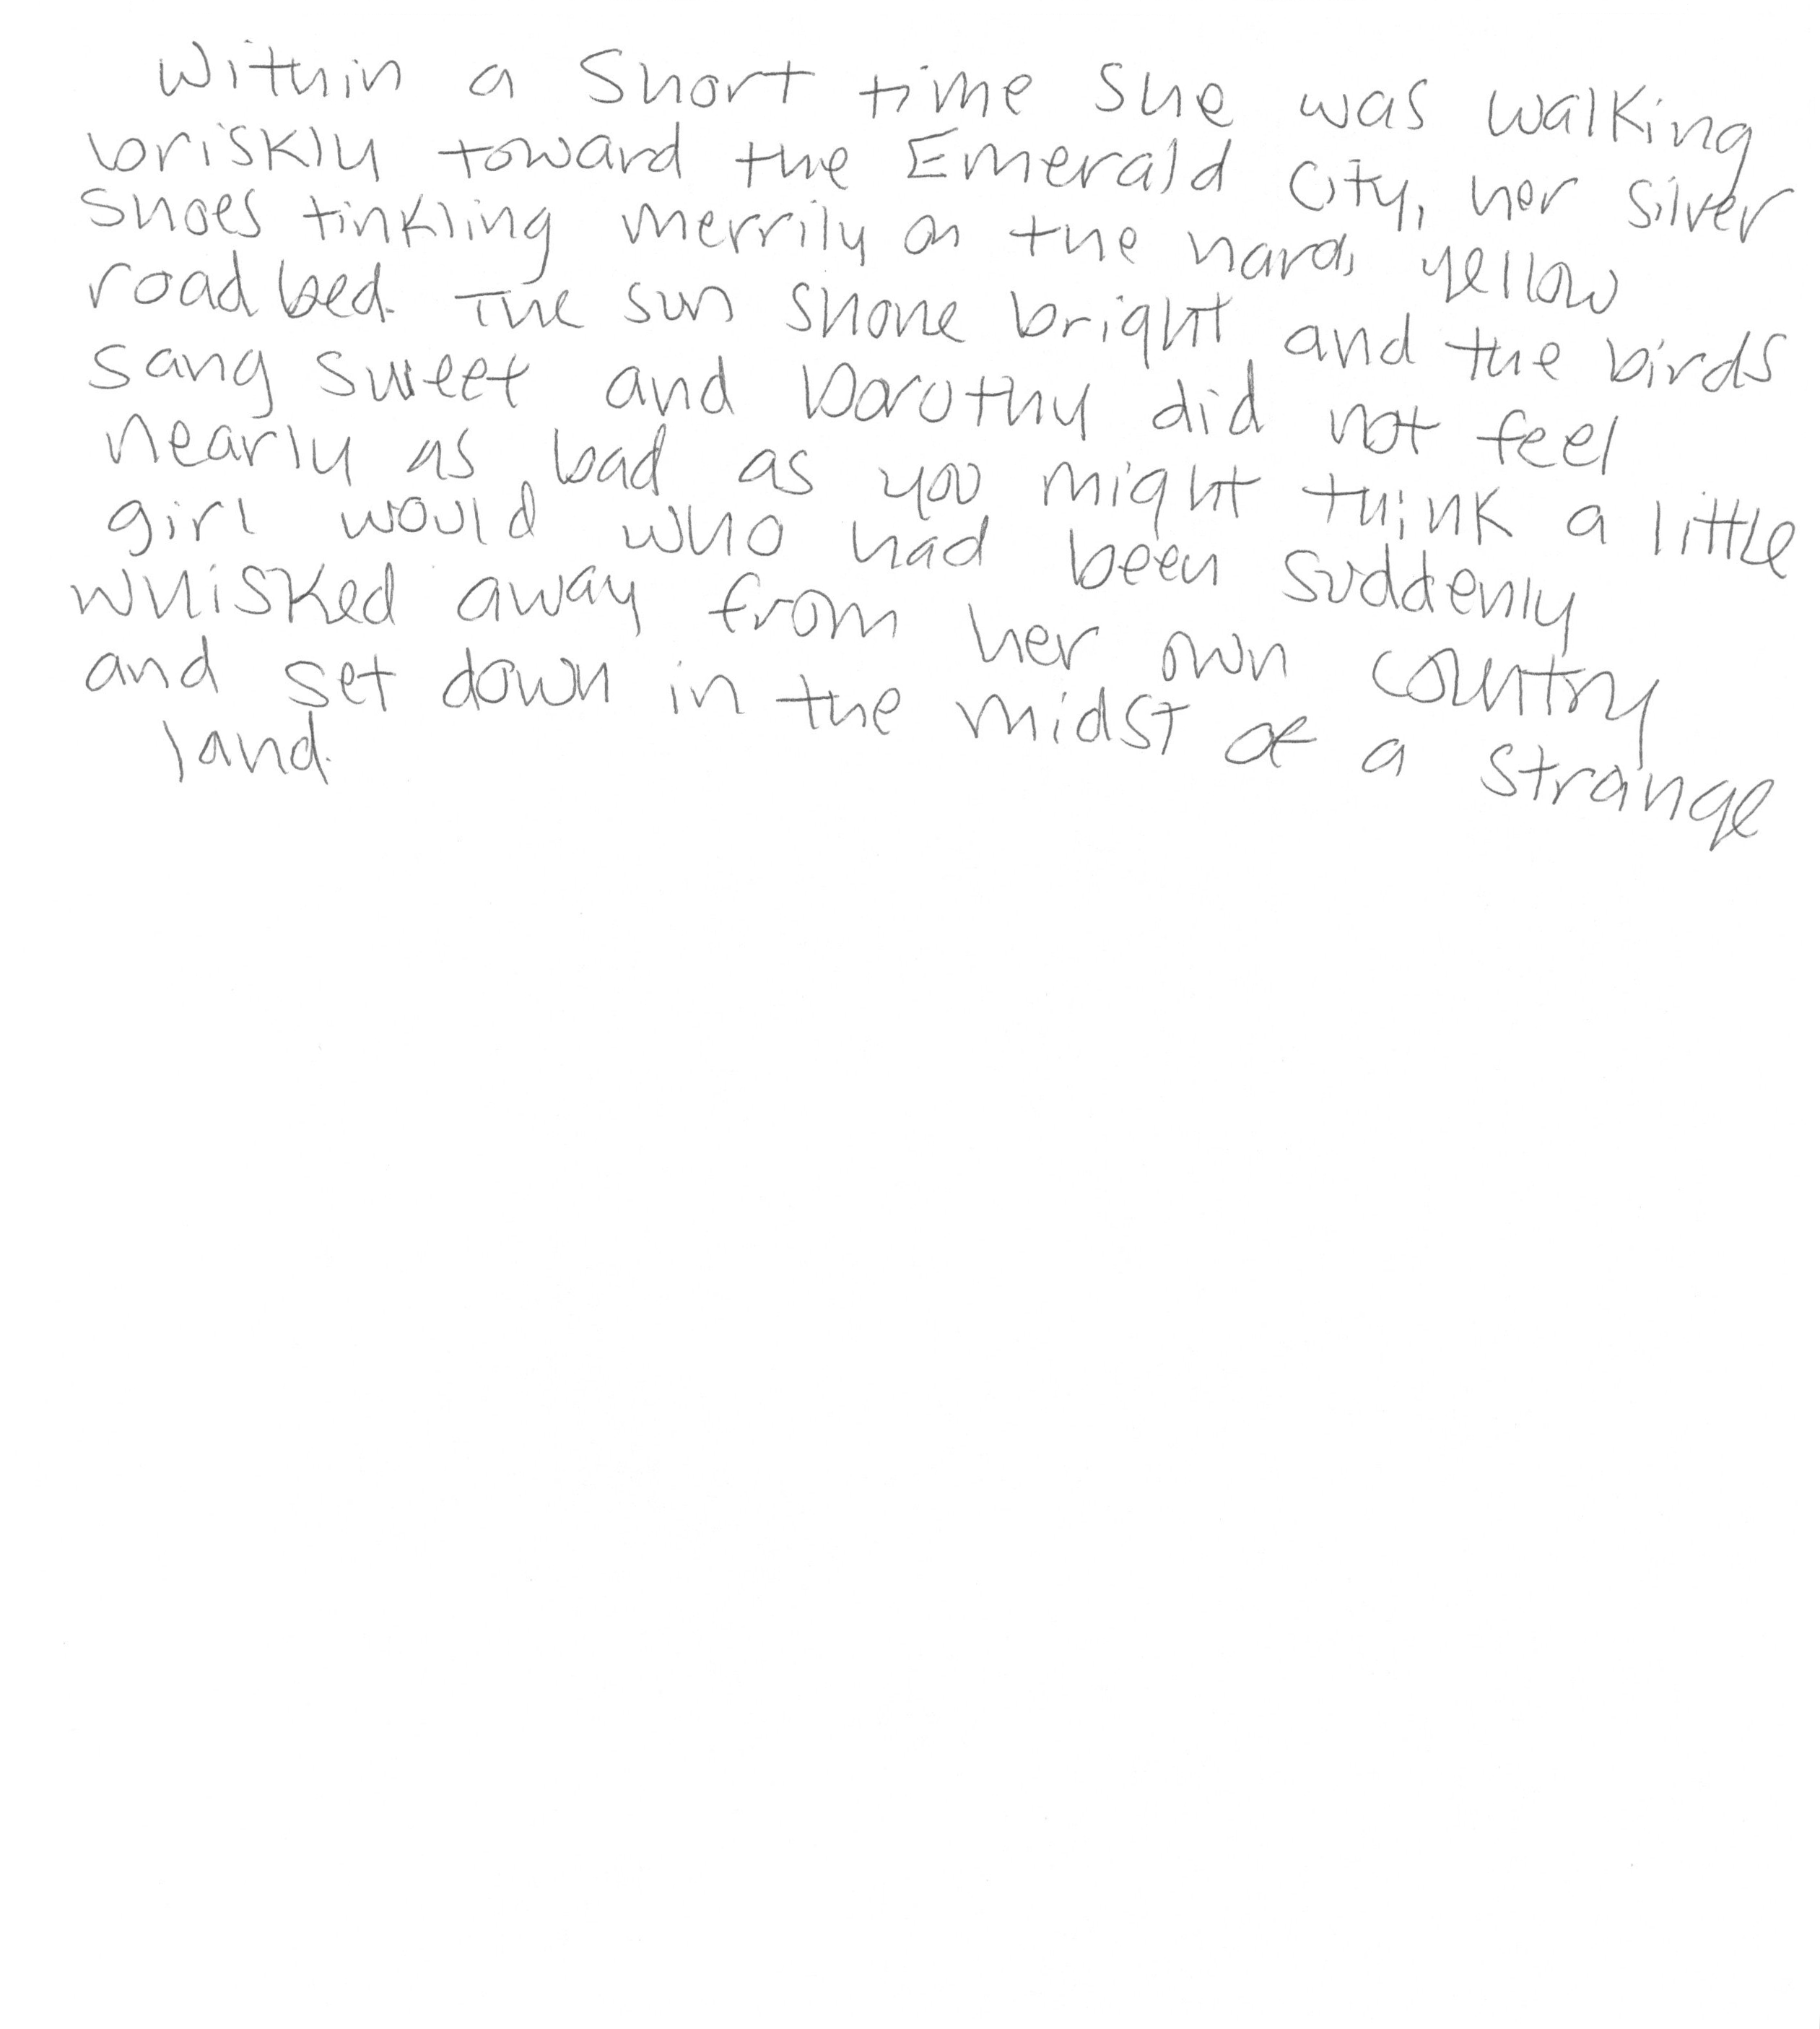 Within a Short time she was walking
briskly toward the Emerald City, her silver
shoes tinkling merrily on the hard, yellow
road bed. The sun shone bright and the birds
sang sweet and Dorothy did not feel
nearly as bad as you might think a little
girl would who had been suddenly
whisked away from her own country
and set down in the midst of a strange
land.